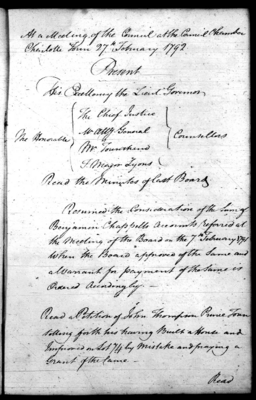 At a Meeting of the Council at the Council Chamber
Charlotte Town 27th February 1792
Present
His Excellency the Lieut Governor
The Honorable
The Chief Justice
Mr Atty General
Mr Townshend
Major Lyons
Councillors
Read the Minutes of last Board
Resumed the Consideration of the
Benjamin Chappells Accounts referred at
the Meeting of the Board on the 7 February
when the Board approved of the same and
a Warrant for payment of the same is
Ordered accordingly
Read a Petition of John Thompson Prince Town
setting forth his having Built a House and
Improved on Lot 74 by Mistake and praying a
Grant of the same
Read